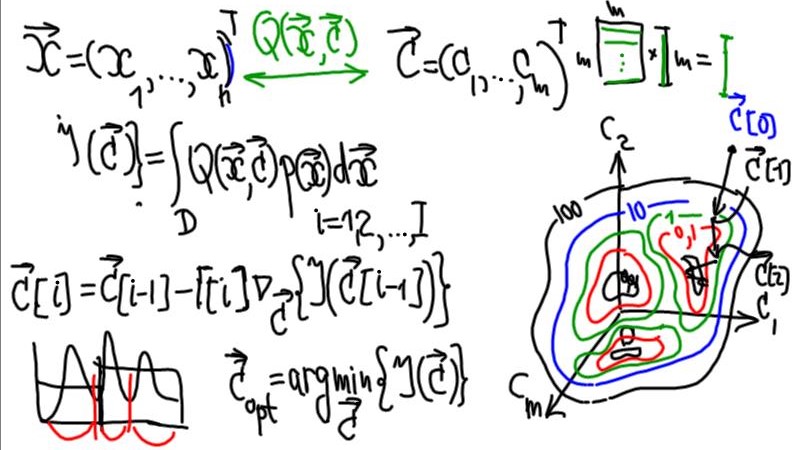 x⃗=(x₁,...,xₙ)ᵀ Q(x⃗,c⃗) c⃗=(c₁,...,cₘ)ᵀ m m × m =
J(c⃗)}=∫Q(x⃗,c⃗)p(x⃗)dx⃗
D i=1,2,...,I
c⃗[i]=c⃗[i-1]-Γ[i]∇c⃗{J(c⃗[i-1])}
c⃗opt=argmin{J(c⃗)}
c⃗
c⃗[0]
C₂ c⃗[1]
100 10 1 0,1
c⃗[2]
C₁
Cₘ